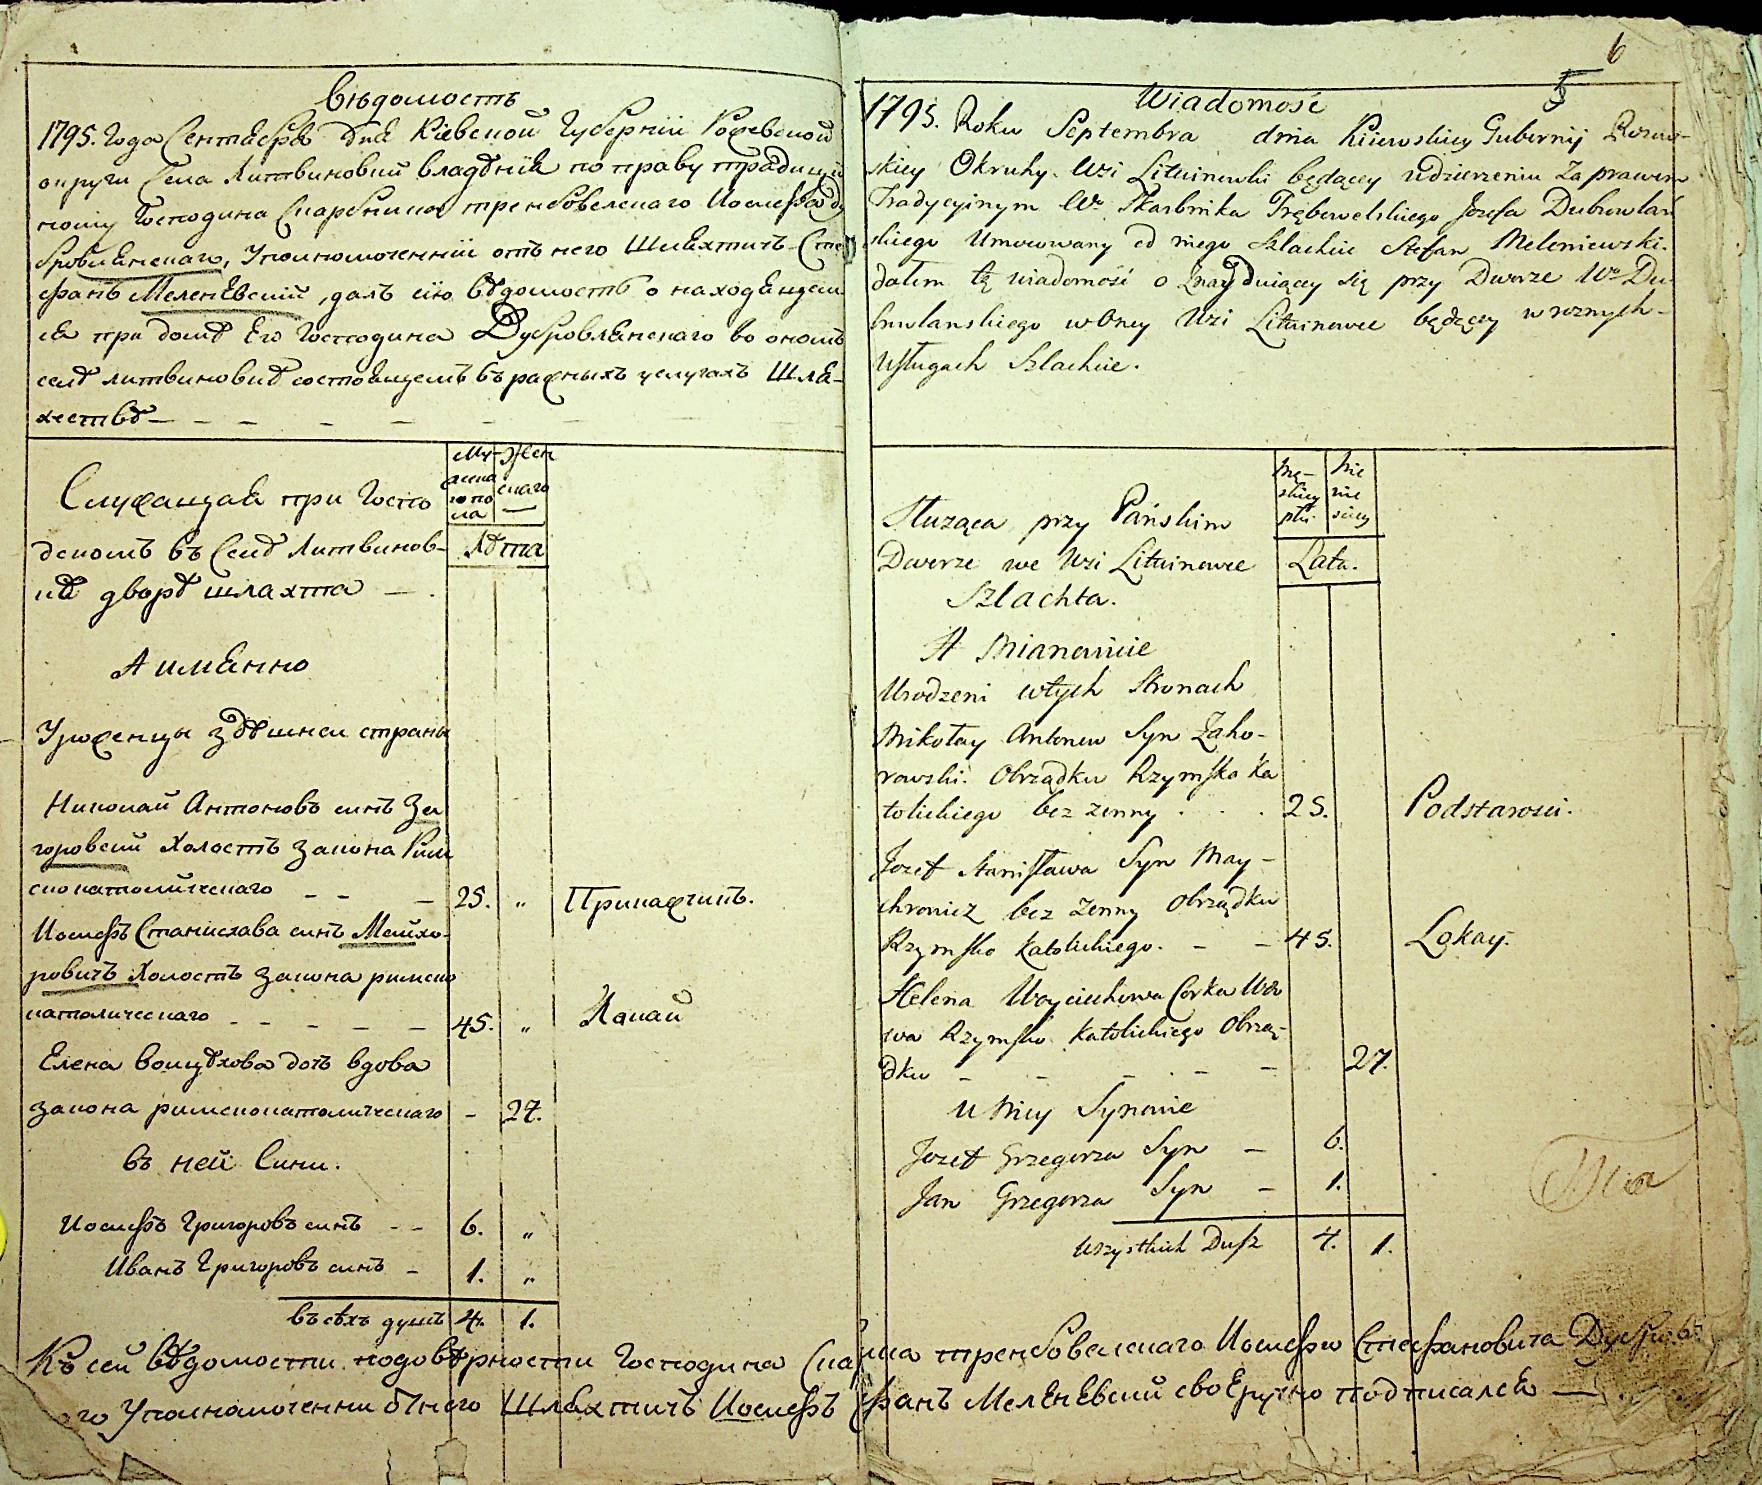 Вѣдомость
1795. Года Сентября дня Кіевской Губерніи Рожевской
округи Села Литвиновки владѣнія по праву традиций
ному Господина Скарбника тренбовелскаго Иосифа Ду
бровлянскаго, Уполномоченній отъ него Шляхтичъ Сте
фанъ Меленѣвскій, далъ сію вѣдомость о находящем
ся при домѣ Его Господина Дубровлянскаго во ономъ
селѣ литвиновкѣ состоящемъ въ разныхъ услугахъ Шля-
хествѣ —
Служащая при Госпо
дскомъ въ Селѣ Литвинов-
кѣ дворѣ шляхта —
Му-
жеска
го по
ла
Жен
скаго
Лѣта
А имянно
Уроженцы здѣшней страны
Николай Антоновъ синъ За
горовскій Холостъ закона Рим
скокатолическаго — — — 25. „ Прикащикъ.
Иосифъ Станислава синъ Мейхо-
ровичъ Холостъ закона римско
католическаго — — — — — 45. „ Лакай
Елена Войцѣхова дочъ вдова
закона римскокатолическаго — 27.
въ ней Сини.
Иосифъ Григоровъ синъ — — 6. „
Иванъ Григоровъ синъ — 1. „
всѣхъ душъ 4. 1.
6
5
Wiadomość
1795. Roku Septembra dnia Kiiowskiey Gubernij Rozew-
skiey Okruhy. Wsi Lituinowki będącey w dzierzeniu Za prawem
Tradycyinym Wo Skarbnika Trębowelskiego Jozefa Dubrowlań
skiego Umocowany od niego Szlachcic Stefan Meleniewski.
dałem tę wiadomość o Znayduiącey się przy Dworze Wo Du
browlanskiego w Oney Wsi Lituinowce będącey w roznych-
Usługach Szlachcie.
Służąca przy Pańskim
Dworze we Wsi Lituinowce
Szlachta.
Mę-
skiey
płci
Nie
wie
sciey
Lata.
A Mianowicie
Urodzeni w tych Stronach
Mikołay Antonow Syn Zaho-
rowski. Obrządku Rzymsko Ka
tolickiego bez zenny . . . 25. Podstarosci.
Jozef Stanisława Syn May-
chrowicz bez zenny Obrządku
Rzymsko Katolickiego. — — 45. Lokay.
Helena Woyciechowa Corka Wdo
wa Rzymsko Katolickiego Obrzą-
dku — — — — — 27.
U Niey Synowie
Jozef Grzegorza Syn — 6.
Jan Grzegorza Syn — 1.
Wszystkich Dusz 4. 1.
Къ сей вѣдомости подовѣрности Господина Ска ника тренбовелскаго Иосифа Стефановича Дубров
го Уполномоченни отнего Шляхтичъ Иосифъ Стефанъ Меленѣвскій своеручно подписался —